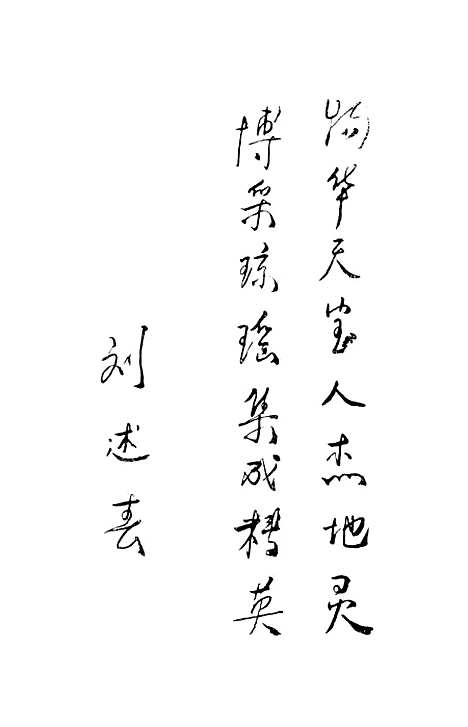 物华天宝人杰地灵
博采琼瑶集成精英
刘述春